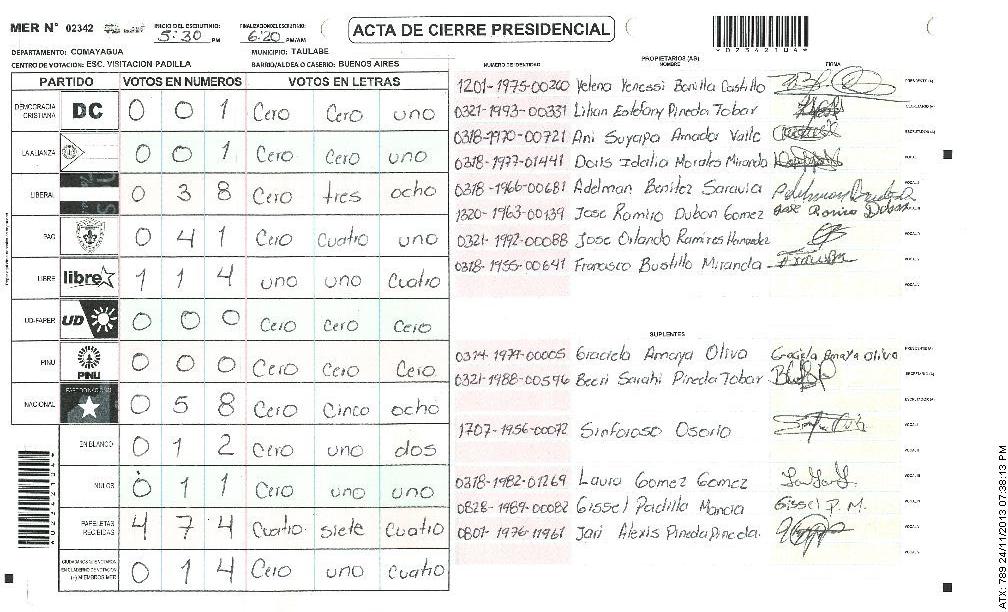 MER N° 02342
INICIO DEL ESCRUTINIO: 5:30 PM
FINALIZACION ESCRUTINIO: 6:20 PM/AM
ACTA DE CIERRE PRESIDENCIAL
02342104
DEPARTAMENTO: COMAYAGUA MUNICIPIO: TAULABE
CENTRO DE VOTACION: ESC. VISITACION PADILLA BARRIO/ALDEA O CASERIO: BUENOS AIRES
PARTIDO VOTOS EN NUMEROS VOTOS EN LETRAS
DEMOCRACIA CRISTIANA DC 0 0 1 Cero Cero uno
LA ALIANZA 0 0 1 Cero Cero uno
LIBERAL 0 3 8 Cero tres ocho
PAC 0 4 1 Cero Cuatro uno
LIBRE libre 1 1 4 uno uno Cuatro
UD-FAPER UD 0 0 0 Cero Cero Cero
PINU PINU 0 0 0 Cero Cero Cero
NACIONAL 0 5 8 Cero Cinco ocho
EN BLANCO 0 1 2 Cero uno dos
NULOS 0 1 1 Cero uno uno
PAPELETAS RECIBIDAS 4 7 4 Cuatro siete Cuatro
0 1 4 Cero uno Cuatro
PROPIETARIOS (AS)
NUMERO DE IDENTIDAD NOMBRE FIRMA
1201-1975-00200 Yelena Yenessi Bonilla Castillo
0321-1993-00331 Lilian Estefany Pineda Tobar
0318-1970-00721 Ani Suyapa Amador Valle
0318-1977-01441 Doris Idalia Morales Miranda
0318-1966-00681 Adelman Benitez Saravia
1320-1963-00139 Jose Ramiro Dubon Gomez Jose Ramiro Dubon
0321-1992-00088 Jose Orlando Ramires Hernandez
0318-1955-00641 Francisco Bustillo Miranda
SUPLENTES
0314-1979-00005 Graciela Amaya Oliva Graciela Amaya Oliva
0321-1988-00596 Becri Sarahi Pineda Tobar
1707-1956-00072 Sinforoso Osorio
0318-1982-01269 Laura Gomez Gomez
0828-1989-00082 Gissel Padilla Mancia Gissel P. M.
0801-1976-11961 Jari Alexis Pineda Pineda.
ATX: 789 24/11/2013 07:38:13 PM